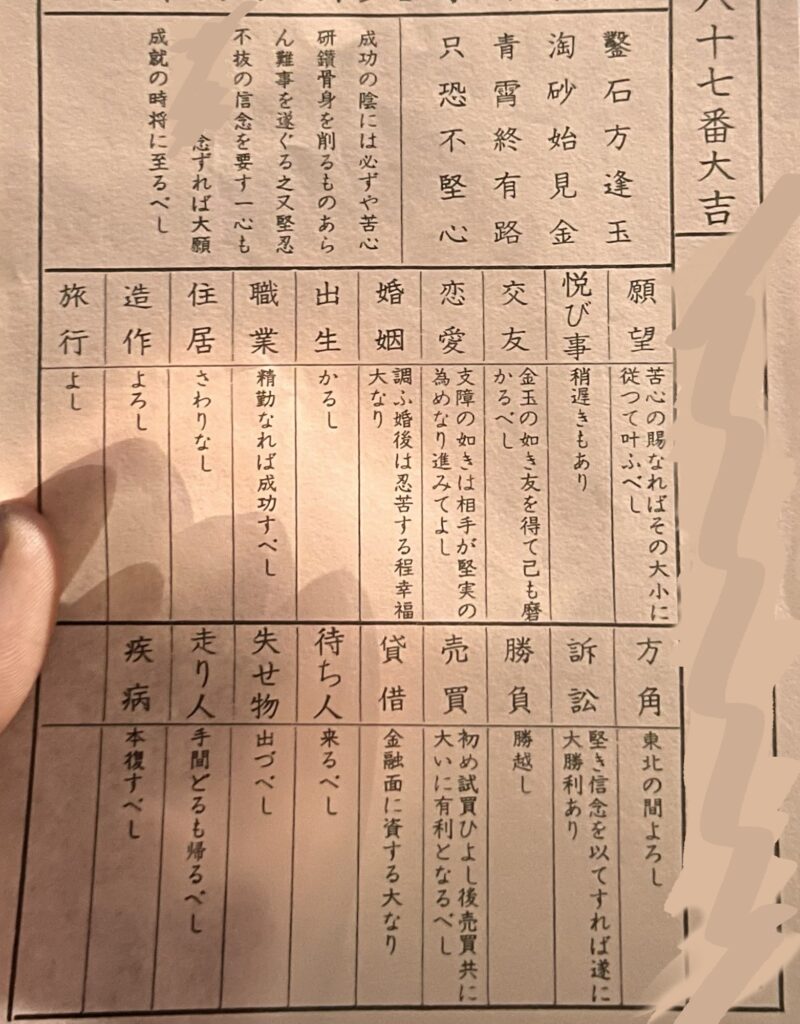 八十七番大吉
鑿石方逢玉
淘砂始見金
青霄終有路
只恐不堅心
成功の陰には必ずや苦心
研鑽骨身を削るものあら
ん難事を遂ぐる之又堅忍
不抜の信念を要す一心も
念ずれば大願
成就の時将に至るべし
願望
苦心の賜なればその大小に
従つて叶ふべし
悦び事
稍遅きもあり
交友
金玉の如き友を得て己も磨
かるべし
恋愛
支障の如きは相手が堅実の
為めなり進みてよし
婚姻
調ふ婚後は忍苦する程幸福
大なり
出生
かるし
職業
精勤なれば成功すべし
住居
さわりなし
造作
よろし
旅行
よし
方角
東北の間よろし
訴訟
堅き信念を以てすれば遂に
大勝利あり
勝負
勝越し
売買
初め試買ひよし後売買共に
大いに有利となるべし
貸借
金融面に資する大なり
待ち人
来るべし
失せ物
出づべし
走り人
手間どるも帰るべし
疾病
本復すべし